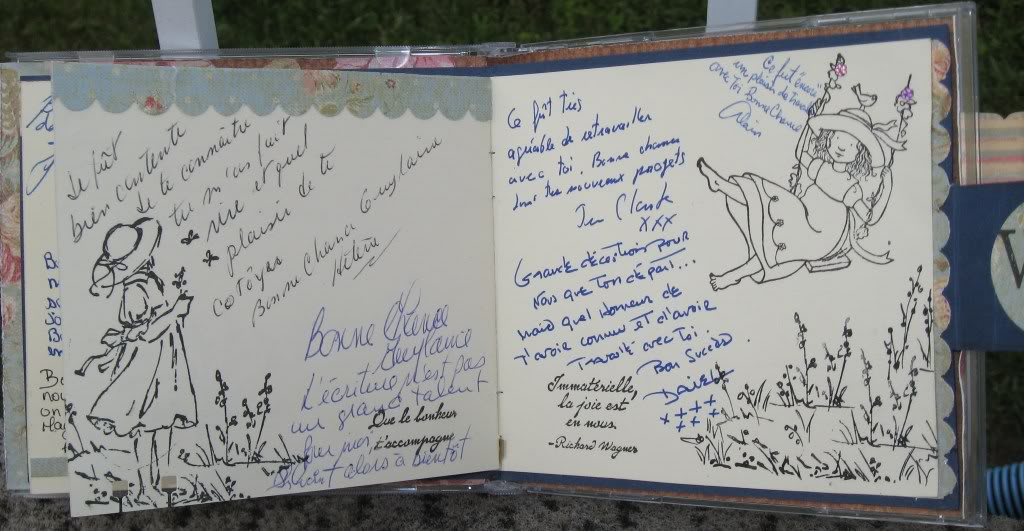 Je fût
bien contente
de te connaître
tu m'as fait
rire et quel
plaisir de te
côtoyer Guylaine
Bonne Chance
Hélène
Bonne Chance
Guylaine
L'écriture n'est pas
un grand talent
alors à bientôt
Que le bonheur
t'accompagne
Ce fût très
agréable de retravailler
avec toi. Bonne chance
dans tes nouveaux projets
Jean Claude
XXX
Grande déception pour
Nous que ton départ...
mais quel honneur de
t'avoir connu et d'avoir
Travaillé avec toi.
Bon Succès.
Immatérielle,
la joie est
en nous.
-Richard Wagner
Ce fut encore
un plaisir de travailler
avec toi Bonne Chance
Alain